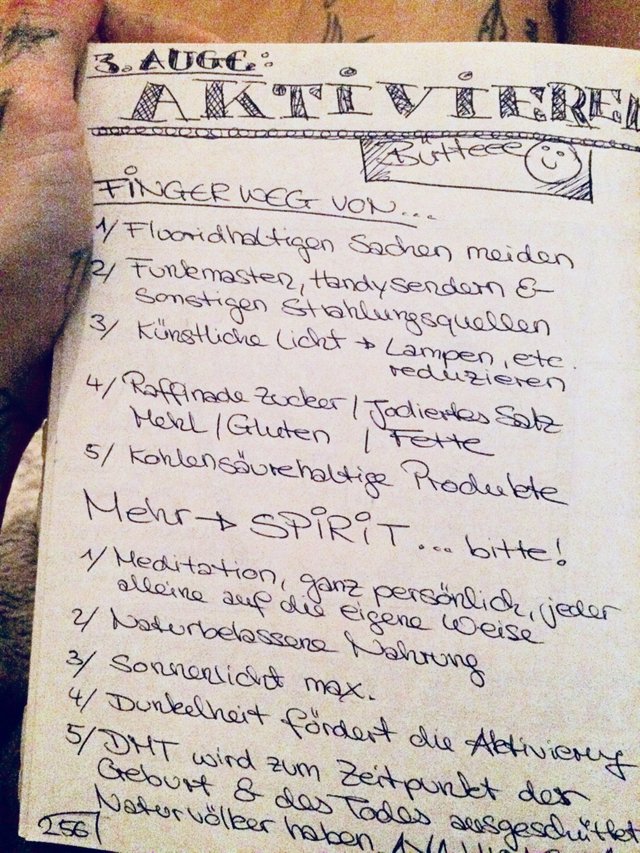 3. AUGE:
AKTIVIEREN
Bütteee
FINGER WEG VON...
1/ Fluoridhaltigen Sachen meiden
2/ Funkemasten, Handysendern &
sonstigen Strahlungsquellen
3/ Künstliche Licht → Lampen, etc.
reduzieren
4/ Raffinade Zucker / Jodiertes Salz
Mehl / Gluten / Fette
5/ Kohlensäurehaltige Produkte
Mehr → SPIRIT... bitte!
1/ Meditation, ganz persönlich, jeder
alleine auf die eigene Weise
2/ Naturbelassene Nahrung
3/ Sonnenlicht max.
4/ Dunkelheit fördert die Aktivierung
5/ DMT wird zum Zeitpunkt der
Geburt & des Todes ausgeschüttet
Naturvölker haben
256